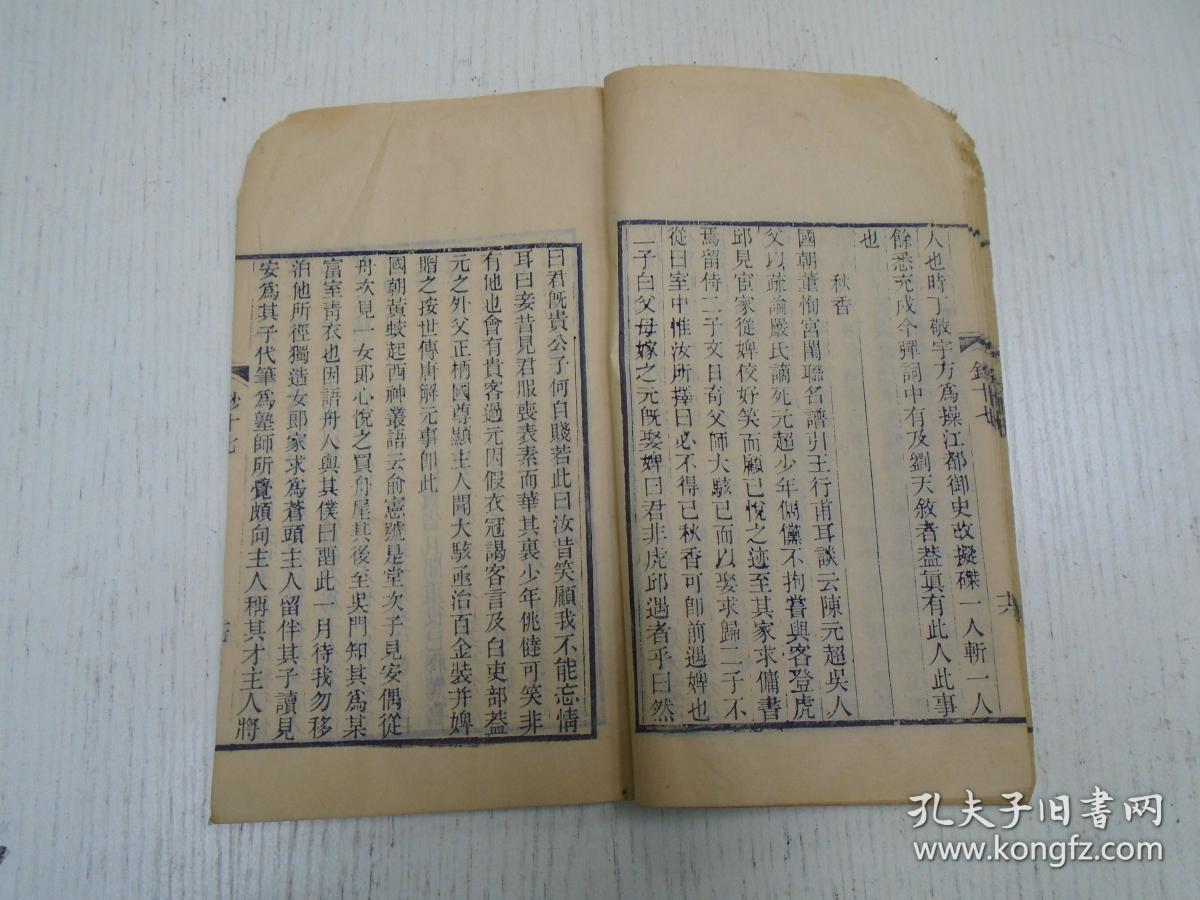 人也時丁敬宇方為操江都御史改擬磔一人斬一人
餘悉充戍今彈詞中有及劉天敘者蓋眞有此人此事
也
秋香
國朝董恂宮閨聯名譜引王行甫耳談云陳元超吳人
父以疏論嚴氏謫死元超少年倜儻不拘嘗與客登虎
邱見宦家從婢佼好笑而顧已悅之迹至其家求傭書
焉留侍二子文日奇父師大駭已而以娶求歸二子不
從曰室中惟汝所擇曰必不得已秋香可卽前遇婢也
二子白父母嫁之元旣娶婢曰君非虎邱遇者乎曰然
曰君旣貴公子何自賤若此曰汝昔笑顧我不能忘情
耳曰妾昔見君服喪表素而華其裏少年佻㒓可笑非
有他也會有貴客過元因假衣冠謁客言及白吏部蓋
元之外父正柄國尊顯主人聞大駭亟治百金裝并婢
贈之按世傳唐解元事卽此
國朝黃蛟起西神叢語云俞憲號是堂次子見安偶從
舟次見一女郎心悅之買舟尾其後至吳門知其爲某
富室靑衣也因語舟人與其僕曰語此一月待我勿移
泊他所徑獨造女郎家求爲蒼頭主人留伴其子讀見
安爲其子代筆爲塾師所覺頗向主人稱其才主人將
鈔十七
孔夫子旧书网
www.kongfz.com